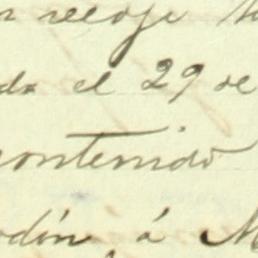 reloje
da el 29 de
contenido
odón, á M